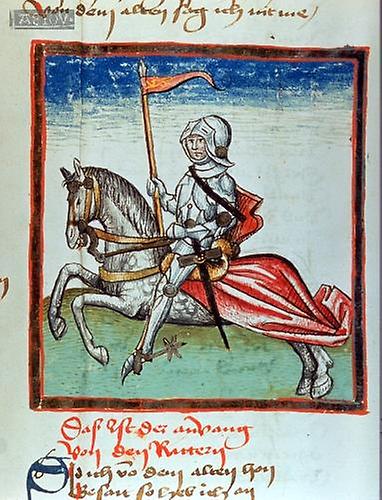 Von dem alten sag ich nit me
Das Ist der anvang
Von den Rittern
So ich vo dem alten hon
so heb ich an